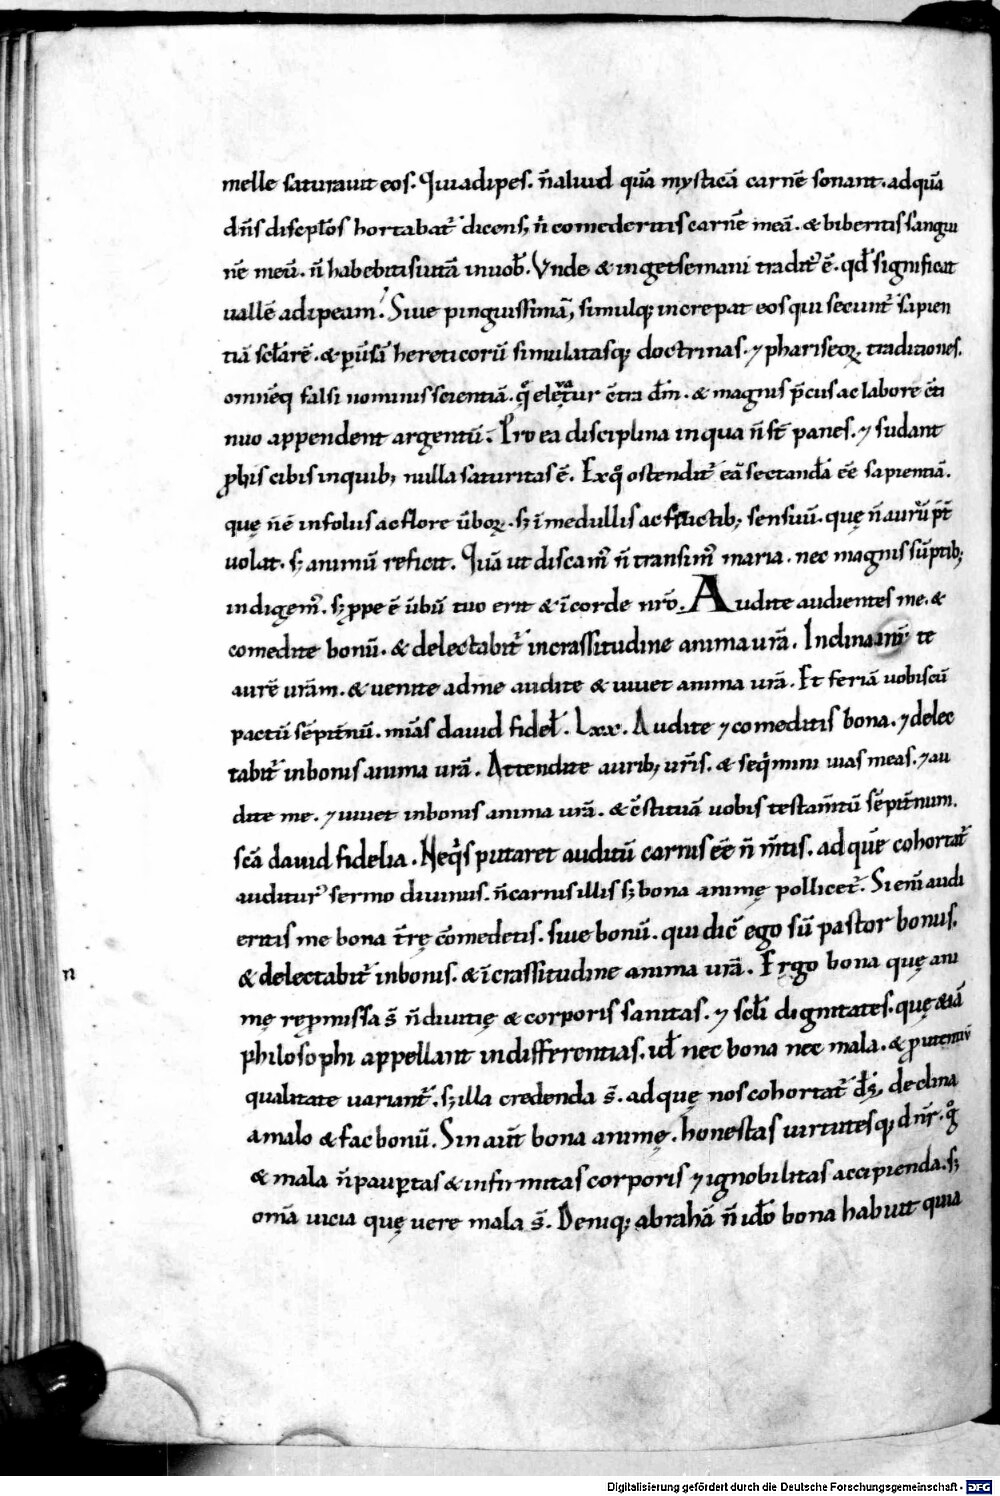 melle saturauit eos. Qui adipes. n̄ aliud quā mysticā carnē sonant. ad quā
dn̄s discipl̄os hortabat᷑ dicens; n̄ comederitis carnē meā. & biberitis sangui
nē meū. n̄ habebitis uitā in uob̄. Vnde & in getsemani tradit᷑ ē. qd̄ significat
uallē adipeam! Siue pinguissimā, simulq; increpat eos qui secunt᷑ sapien
tiā sc̄larē. & ꝑuersā hereticorū simulatasq; doctrinas. ⁊ phariseoꝝ traditiones.
omnēq falsi nominis scientiā. q̊ eleuatur c̄tra dm̄. & magnis p̄cus ac labore c̄ti
nuo appendent argentū. Pro ea disciplina in qua n̄ st̄ panes. ⁊ sudant
ꝓ his cibis in quib; nulla saturitas ē. Ex q̊ ostendit᷑ eā sectandā ēē sapientiā.
quę n̄ ē in foliis ac flore ūboꝝ. s; ī medullis ac fructib; sensuū. quę n̄ aurū p̄t
uolat. s; animū reficit. Quā ut discam᷒ n̄ transim᷒ maria. nec magnis sūptib;
indigem᷒. s; ꝓpe ē ūbū tuo erit & ī corde nr̄o. Audite audientes me. &
comedite bonū. & delectabit᷑ in crassitudine anima urā. Inclina te
aurē urām. & uenite ad me audite & uiuet anima urā. Et feriā uobiscū
pactū sēpit̄nū. miās dauid fidel̄. Lxx. Audite ⁊ comeditis bona. ⁊ delec
tabit᷑ in bonis anima urā. Attendite aurib; ur̄is. & seq̄mini uias meas. ⁊ au
dite me. ⁊ uiuet in bonis anima urā. & c̄stituā uobis testam̄tū sēpit̄num.
scā dauid fidelia. Neq̄s putaret auditū carnis ēē n̄ m̄tis. ad quē cohortat᷑
auditur᷒ sermo diuinus. n̄ carnis illis s; bona animę pollicet᷑. Si eni᷒ audi
eritis me bona t̄rę c̄omedetis. siue bonū. qui dic̄ ego sū pastor bonus.
& delectabit᷑ in bonis. & ī crassitudine anima urā. Ergo bona quę ani
n
mę rep̄missa s̄ n̄ diuitię & corporis sanitas. ⁊ scl̄i dignitates. quę & iā
philosophi appellant indifferentias. id̄ nec bona nec mala. & ꝓ utentiū
qualitate uariant᷑. s; illa credenda s̄. ad quę nos cohortat᷑ d̄s; declina
a malo & fac bonū. Sin aut̄ bona animę. honestas uirtutesq; dn̄r. g̊
& mala n̄ paup̄tas & infirmitas corporis ⁊ ignobilitas accipienda. s;
omā uicia quę uere mala s̄. Deniq; abrahā n̄ ido bona habuit quia
Digitalisierung gefördert durch die Deutsche Forschungsgemeinschaft - DFG